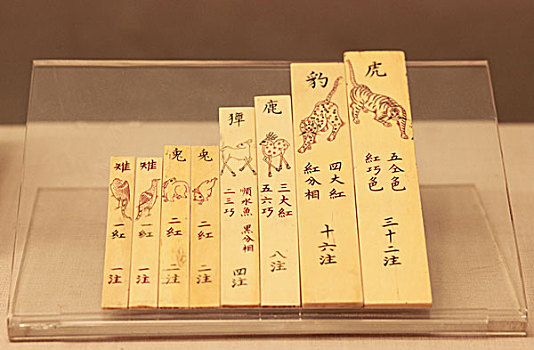 虎
五全色
紅巧色
三十二注
豹
四大紅
紅分相
十六注
鹿
三大紅
五六巧
八注
獐
順水魚
黑分相
二三巧
四注
兎
二紅
二注
兎
二紅
二注
雉
一紅
一注
雉
一紅
一注